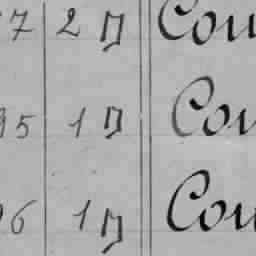 7 2 Д Cou
95 1 Д Cou
96 1 Д Cou